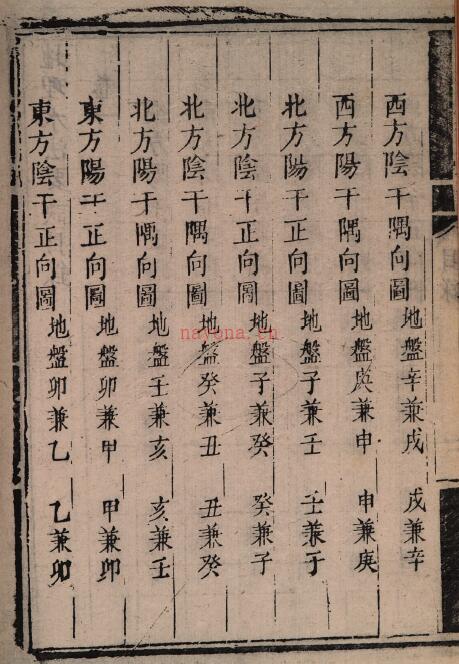 西方陰干隅向圖 地盤辛兼戌 戌兼辛
西方陽干隅向圖 地盤庚兼申 申兼庚
北方陽干正向圖 地盤子兼壬 壬兼子
北方陰干正向圖 地盤子兼癸 癸兼子
北方陰干隅向圖 地盤癸兼丑 丑兼癸
北方陽干隅向圖 地盤壬兼亥 亥兼壬
東方陽干正向圖 地盤卯兼甲 甲兼卯
東方陰干正向圖 地盤卯兼乙 乙兼卯
nayona.cn